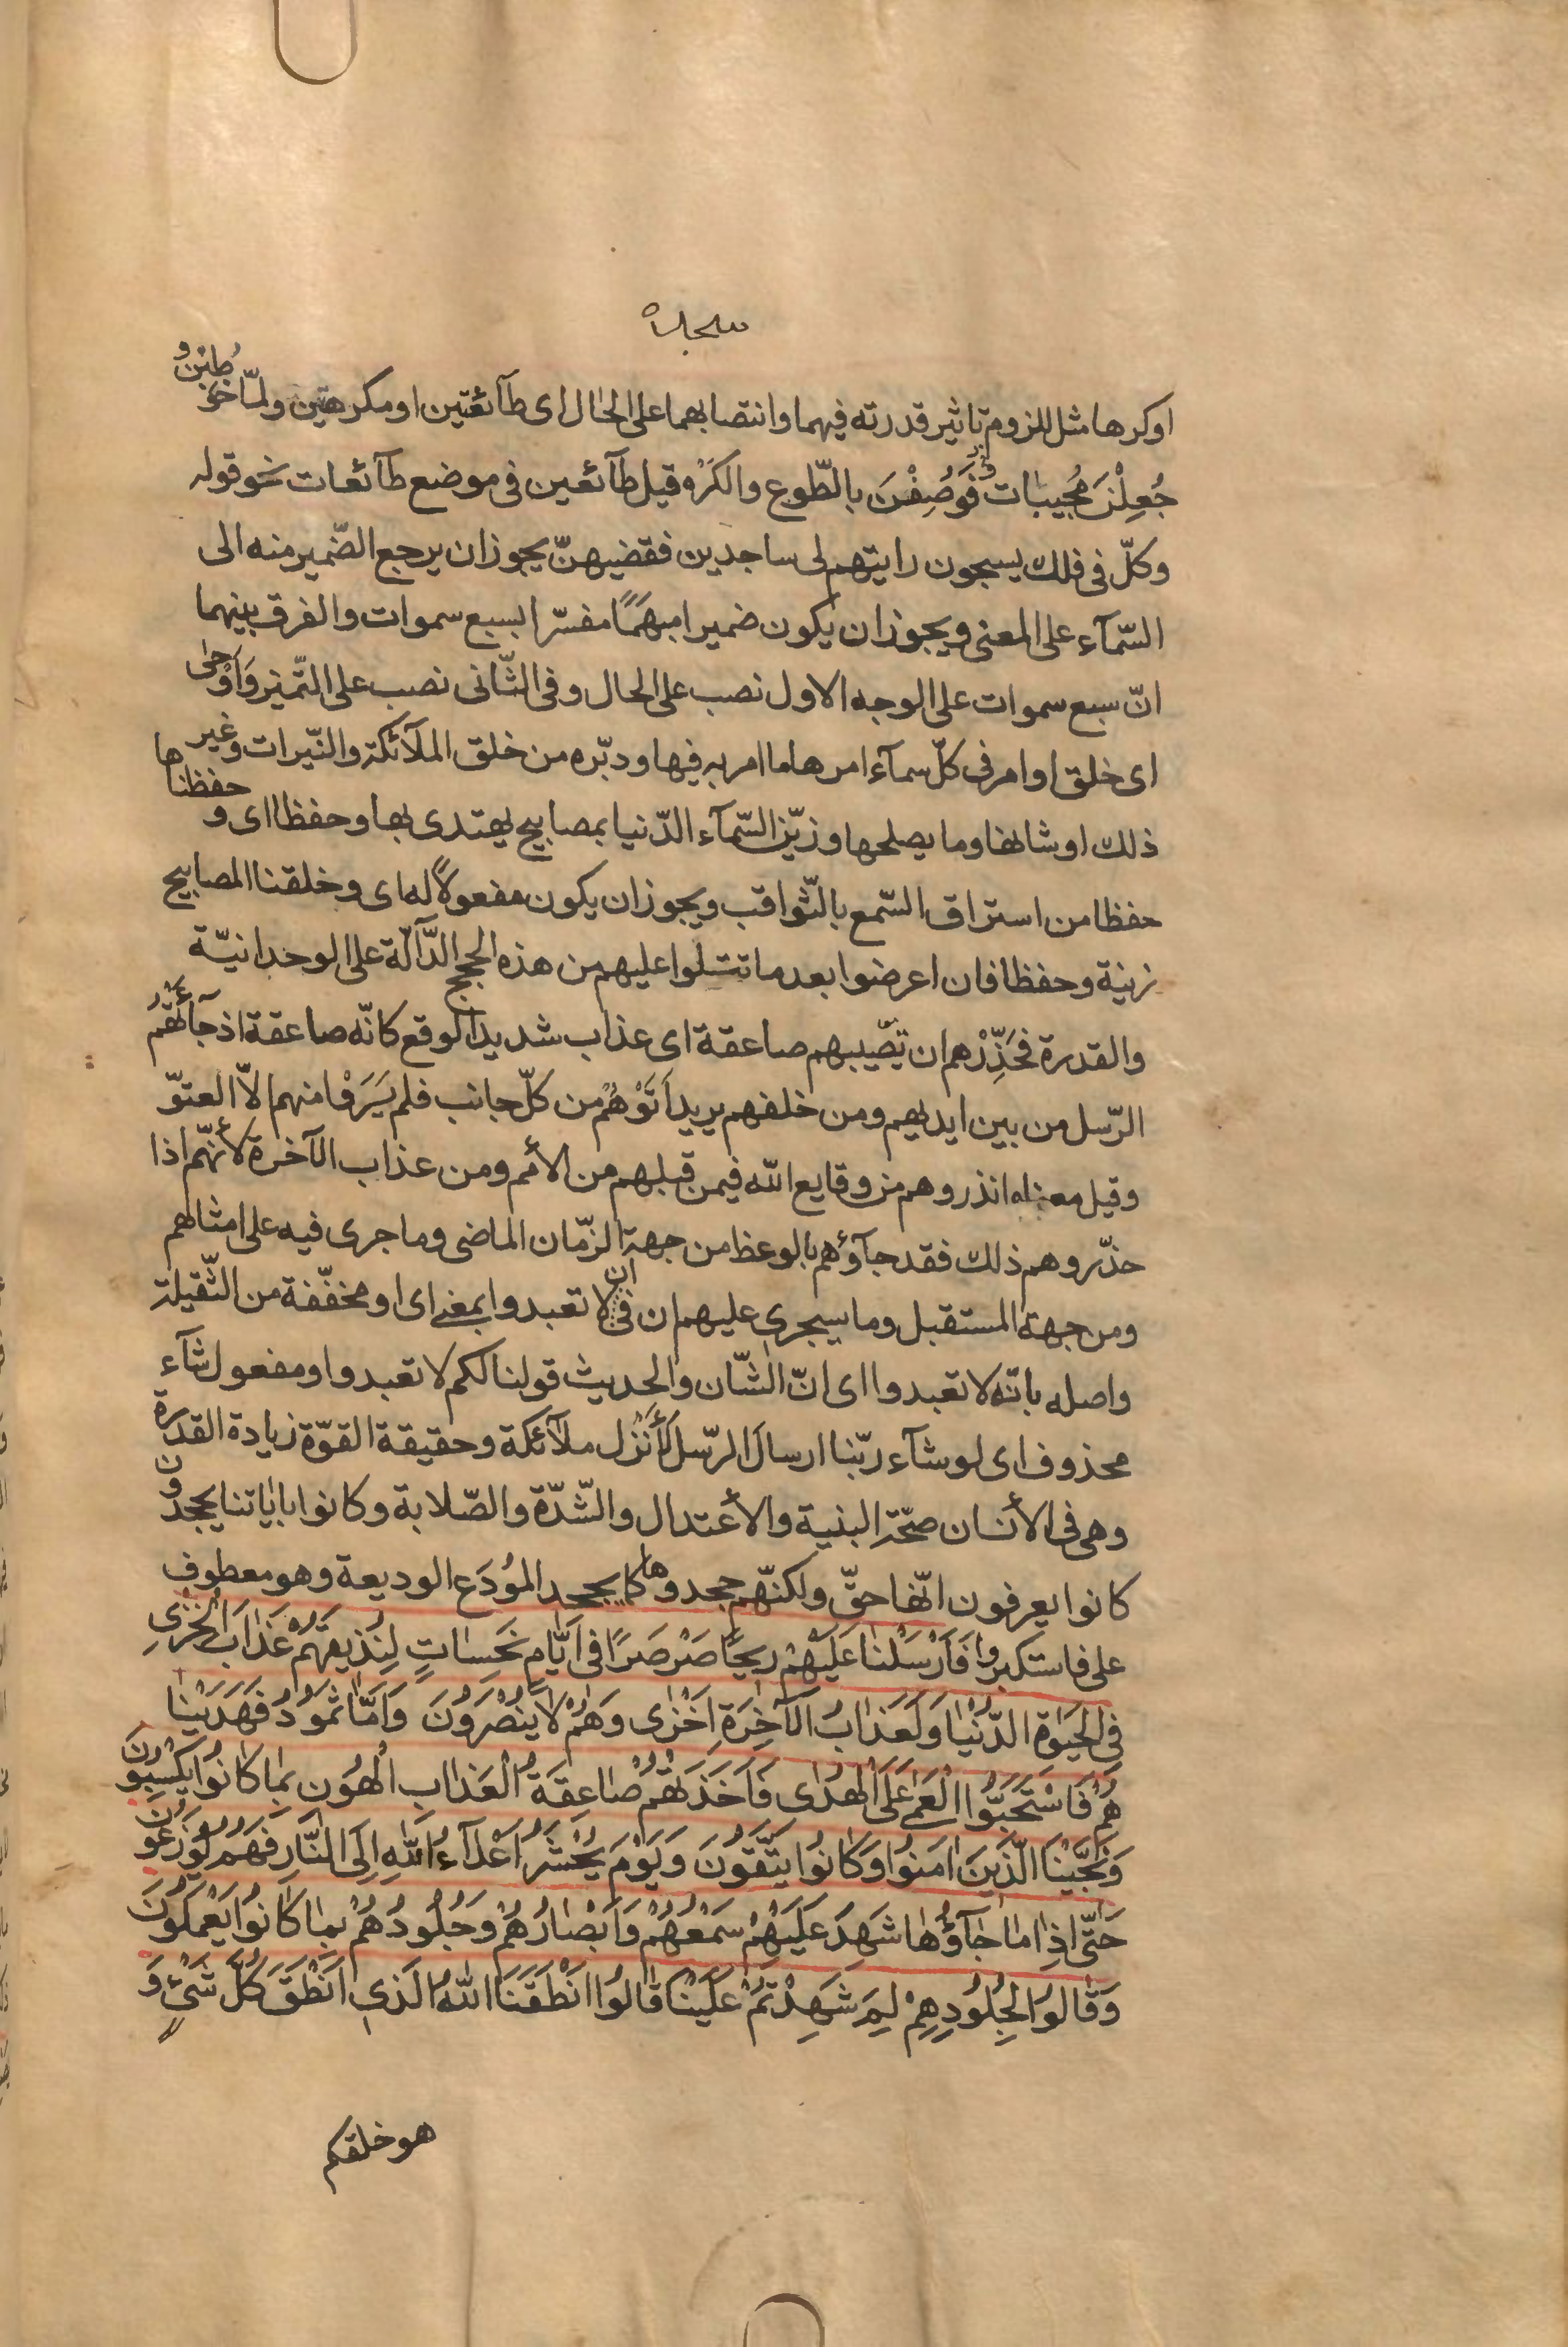 اوكرها مثل للزوم تاثير قدرته فيهما وانتصابهما على الحال اى طآئعتين او مكرهتين ولمّا خوطبن و
جُعِلْنَ مُجيبات وَوُصِفْنَ بالطّوع والكَرْه قيل طآئعين فى موضع طآئعات نحو قوله
وكلّ فى فلك يسبحون رايتهم لى ساجدين فقضيهنّ يجوز ان يرجع الضّمير منه الى
السّمآء على المعنى ويجوز ان يكون ضميرا مبهَمًا مفسّرا بسبع سموات والفرق بينهما
انّ سبع سموات على الوجه الاول نصب على الحال وفى الثّانى نصب على التّميز وَأَوْحٰى
اى خلق او امر فى كلّ سمآء امرها ما امر به فيها ودبّره من خلق الملآئكة والنّيرات وغير
ذلك او شانها وما يصلحها وزيّنا السّمآء الدّنيا بمصابيح يهتدى بها وحفظا اى و حفظناها
حفظا من استراق السّمع بالثّواقب ويجوز ان يكون مفعولًا له اى وخلقنا المصابيح
زينة وحفظا فان اعرضوا بعد ما تتلوا عليهم من هذه الحجج الدّآلّة على الوحدانيّة
والقدرة فحَذِّرْهم ان تصيبهم صاعقة اى عذاب شديد الوقع كانّه صاعقة اذ جآئَتْهُم
الرّسل من بين ايديهم ومن خلفهم يريد اَتَوْهُمْ من كلّ جانب فلم يَرَوْا منهم الاّ العتوّ
وقيل معناه انذروهم من وقايع الله فيمن قبلهم من الأمم ومن عذاب الآخرة لأنّهم اذا
حذّروهم ذلك فقد جآؤهم بالوعظ من جهة الزّمان الماضى وما جرى فيه على امثالهم
ومن جهة المستقبل وما سيجرى عليهم ان فى ان لا تعبدوا بمعنى اى او مخفّفة من الثّقيلة
واصله بانّه لا تعبدوا اى انّ الشّان والحديث قولنا لكم لا تعبدوا ومفعول شآء
محذوف اى لو شآء ربّنا ارسال الرّسل لَأَنْزل ملآئكة وحقيقة القوّة زيادة القدرة
وهى فى الأنسان صحّة البنية والأعتدال والشّدّة والصّلابة وكانوا باياتنا يجحدون
كانوا يعرفون انّها حقّ ولكنّهم جحدوها كما يجحد المُودَع الوديعة وهو معطوف
على فاستكبروا فَاَرْسَلْنا عَلَيْهِمْ ريحًا صَرْصَرًا فى اَيّامٍ نَحِساتٍ لِنُذيقَهُمْ عَذابَ الْخِزْىِ
فِى الْحَيٰوةِ الدُّنْيا وَلَعَذابُ الْآخِرَةِ اَخْزٰى وَهُمْ لا يُنْصَرُونَ وَاَمّا ثَمُودُ فَهَدَيْنا
هُمْ فَاسْتَحَبُّوا الْعَمٰى عَلَى الْهُدٰى فَاَخَذَتْهُمْ صاعِقَةُ الْعَذابِ الْهُونِ بِما كانُوا يَكْسِبُونَ
وَنَجَّيْنَا الَّذينَ امَنُوا وَكانُوا يَتَّقُونَ وَيَوْمَ يُحْشَرُ اَعْدآءُ اللهِ اِلَى النّارِ فَهُمْ يُوزَعُونَ
حَتّى اِذا ما جآؤُها شَهِدَ عَلَيْهِمْ سَمْعُهُمْ وَاَبْصارُهُمْ وَجُلُودُهُمْ بِما كانُوا يَعْمَلُونَ
وَقالُوا لِجُلُودِهِمْ لِمَ شَهِدْتُمْ عَلَيْنا قالُوا اَنْطَقَنَا اللهُ الَّذى اَنْطَقَ كُلَّ شَىْءٍ وَ
هو خلقكم